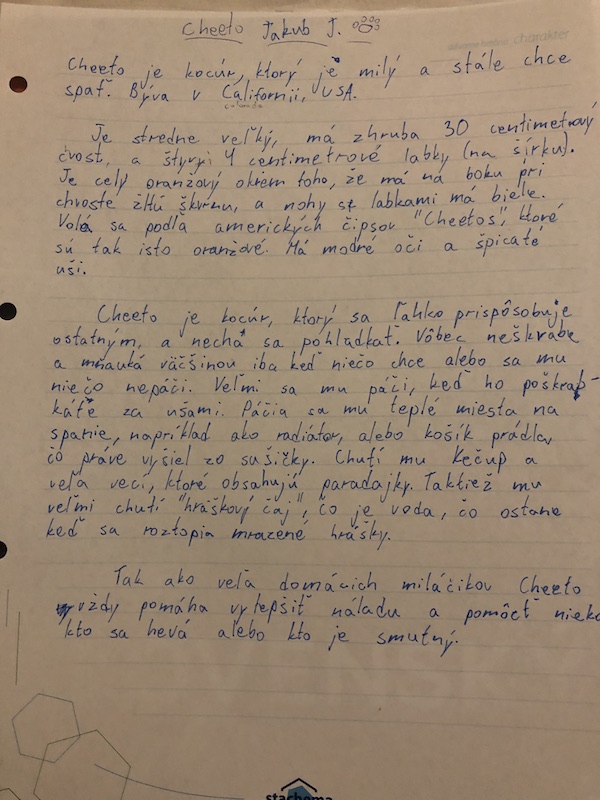 Cheeto Jakub J.
charakter
Cheeto je kocúr, ktorý je milý a stále chce
spať. Býva v Californii, USA.
Je stredne veľký, má zhruba 30 centimetrový
chvost, a štyri 4 centimetrové labky (na šírku).
Je celý oranžový okrem toho, že má na boku pri
chvoste žltú škvrnu, a nohy s labkami má biele.
Volá sa podľa amerických čipsov "Cheetos", ktoré
sú tak isto oranžové. Má modré oči a špicaté
uši.
Cheeto je kocúr, ktorý sa ľahko prispôsobuje
ostatným, a nechá sa pohladkať. Vôbec neškrabe
a mňauká väčšinou iba keď niečo chce alebo sa mu
niečo nepáči. Veľmi sa mu páči, keď ho poškrab-
káte za ušami. Páčia sa mu teplé miesta na
spanie, napríklad ako radiátor, alebo košík prádla
čo práve vyšiel zo sušičky. Chutí mu kečup a
veľa vecí, ktoré obsahujú paradajky. Taktiež mu
veľmi chutí "hráškový čaj", čo je voda, čo ostane
keď sa roztopia mrazené hrášky.
Tak ako veľa domácich miláčikov Cheeto
vždy pomáha vylepšiť náladu a pomôcť
kto sa hevá alebo kto je smutný.
VENSK
stachema